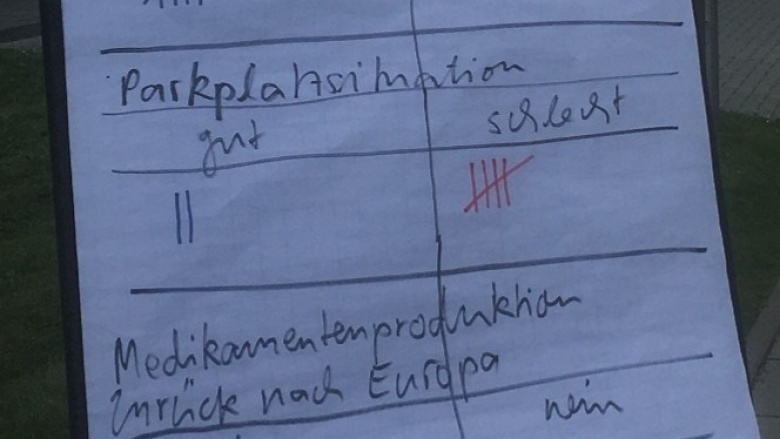 Parkplatzsituation
gut schlecht
Medikamentenproduktion
zurück nach Europa
nein